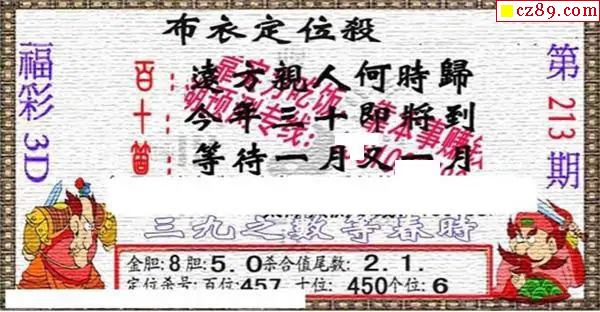 cz89.com
布衣定位殺
福彩3D
第213期
百：遠方親人何時歸
十：今年三十即將到
箇：等待一月又一月
三九之數等春時
金胆:8胆:5.0杀合值尾数:2.1.
定位杀号:百位:457 十位:450个位:6